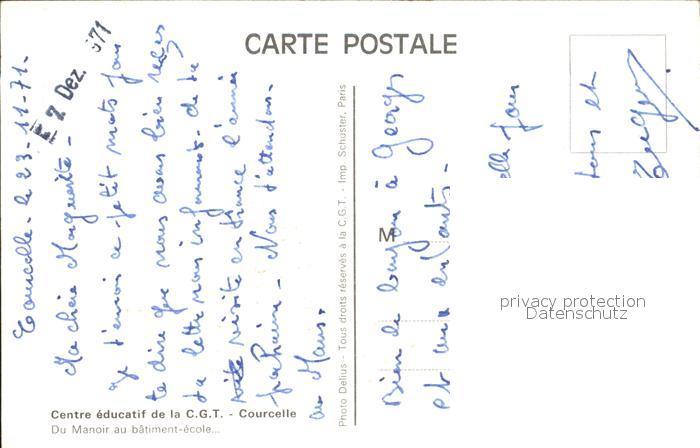 CARTE POSTALE
E 7. Dez. 1971
Courcelle - le 23-11-71-
Ma chère Marguerite -
Je t'envoie ce petit mots pour
te dire que nous avons bien reçus
ta lettre nous informant de ta
visite en France l'année
prochaine - Nous t'attendons
au Mans.
Bien de bonjour à Georges
et aux enfants -
tous et
M
Centre éducatif de la C.G.T. - Courcelle
Du Manoir au bâtiment-école...
Photo Delius - Tous droits réservés à la C.G.T. - Imp. Schuster, Paris
privacy protection
Datenschutz